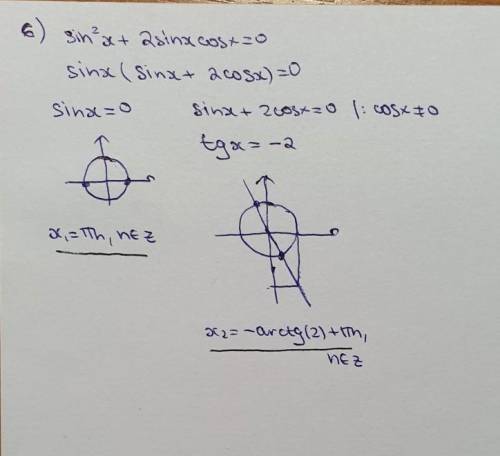 6) sin²x + 2sinxcosx=0
sinx(sinx + 2cosx)=0
sinx=0
sinx + 2cosx=0 |: cosx≠0
tgx = -2
x₁=πn, n∈Z
x₂= -arctg(2)+πn,
n∈Z